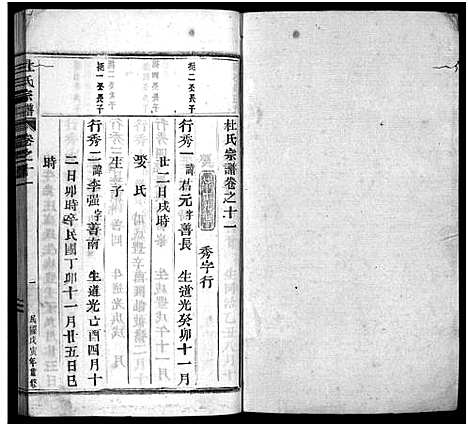 杜氏宗譜卷之十一
秀字行
挺二公長子
行秀一諱君元字善長 生道光癸卯十一月
廿二日戌時
娶 氏
生子
挺一公長子
行秀二諱李强字善南 生道光亡酉四月十
二日卯時卒民國丁卯十一月廿五日巳
時
杜氏宗譜
卷之十一
一
民國戊寅年重修